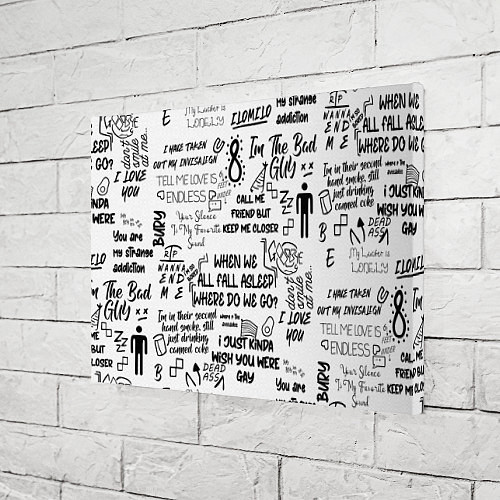 E
My Lucifer is
LONELY
ILOMILO
My strange
addiction
RIP
WANNA
END
ME
WHEN WE
ALL FALL ASLEE
WHERE DO WE GO?
EEP
GO?
don't
smile
at me..
I LOVE
YOU
I HAVE TAKEN
OUT MY INVISALIGN
TELL ME LOVE IS
ENDLESS
8
I'm The Bad
GUY
xx
I'm in their second
hand smoke, still
just drinking
canned coke
i JUST KIN
WISH YOU W
GAY
KINDA
WERE
BURY
Your Silence
Is My Favorite
Sound
CALL ME
FRIEND BUT
KEEP ME CLOSER
ZZZ
You are
My strange
addiction
B
E
DEAD
ASS
My Lucifer is
LONELY
ILOMIL
RIP
WANNA
END
ME
WHEN WE
ALL FALL ASLEEP
WHERE DO WE GO?
don't
smile
at me..
I LOVE
YOU
I HAVE TAKEN
OUT MY INVISALIGN
TELL ME LOVE IS
ENDLESS
6 FEET
UNDER
8
I'm
m The Bad
GUY
xx
I'm in their second
hand smoke, still
just drinking
canned coke
i JUST KINDA
WISH YOU WERE
GAY
ME
BUT
LOSER
ZZZ
B
DEAD
ASS
You are
BURY
Your Silence
Is My Favorite
Sound
CALL ME
FRIEND B
KEEP ME CLO